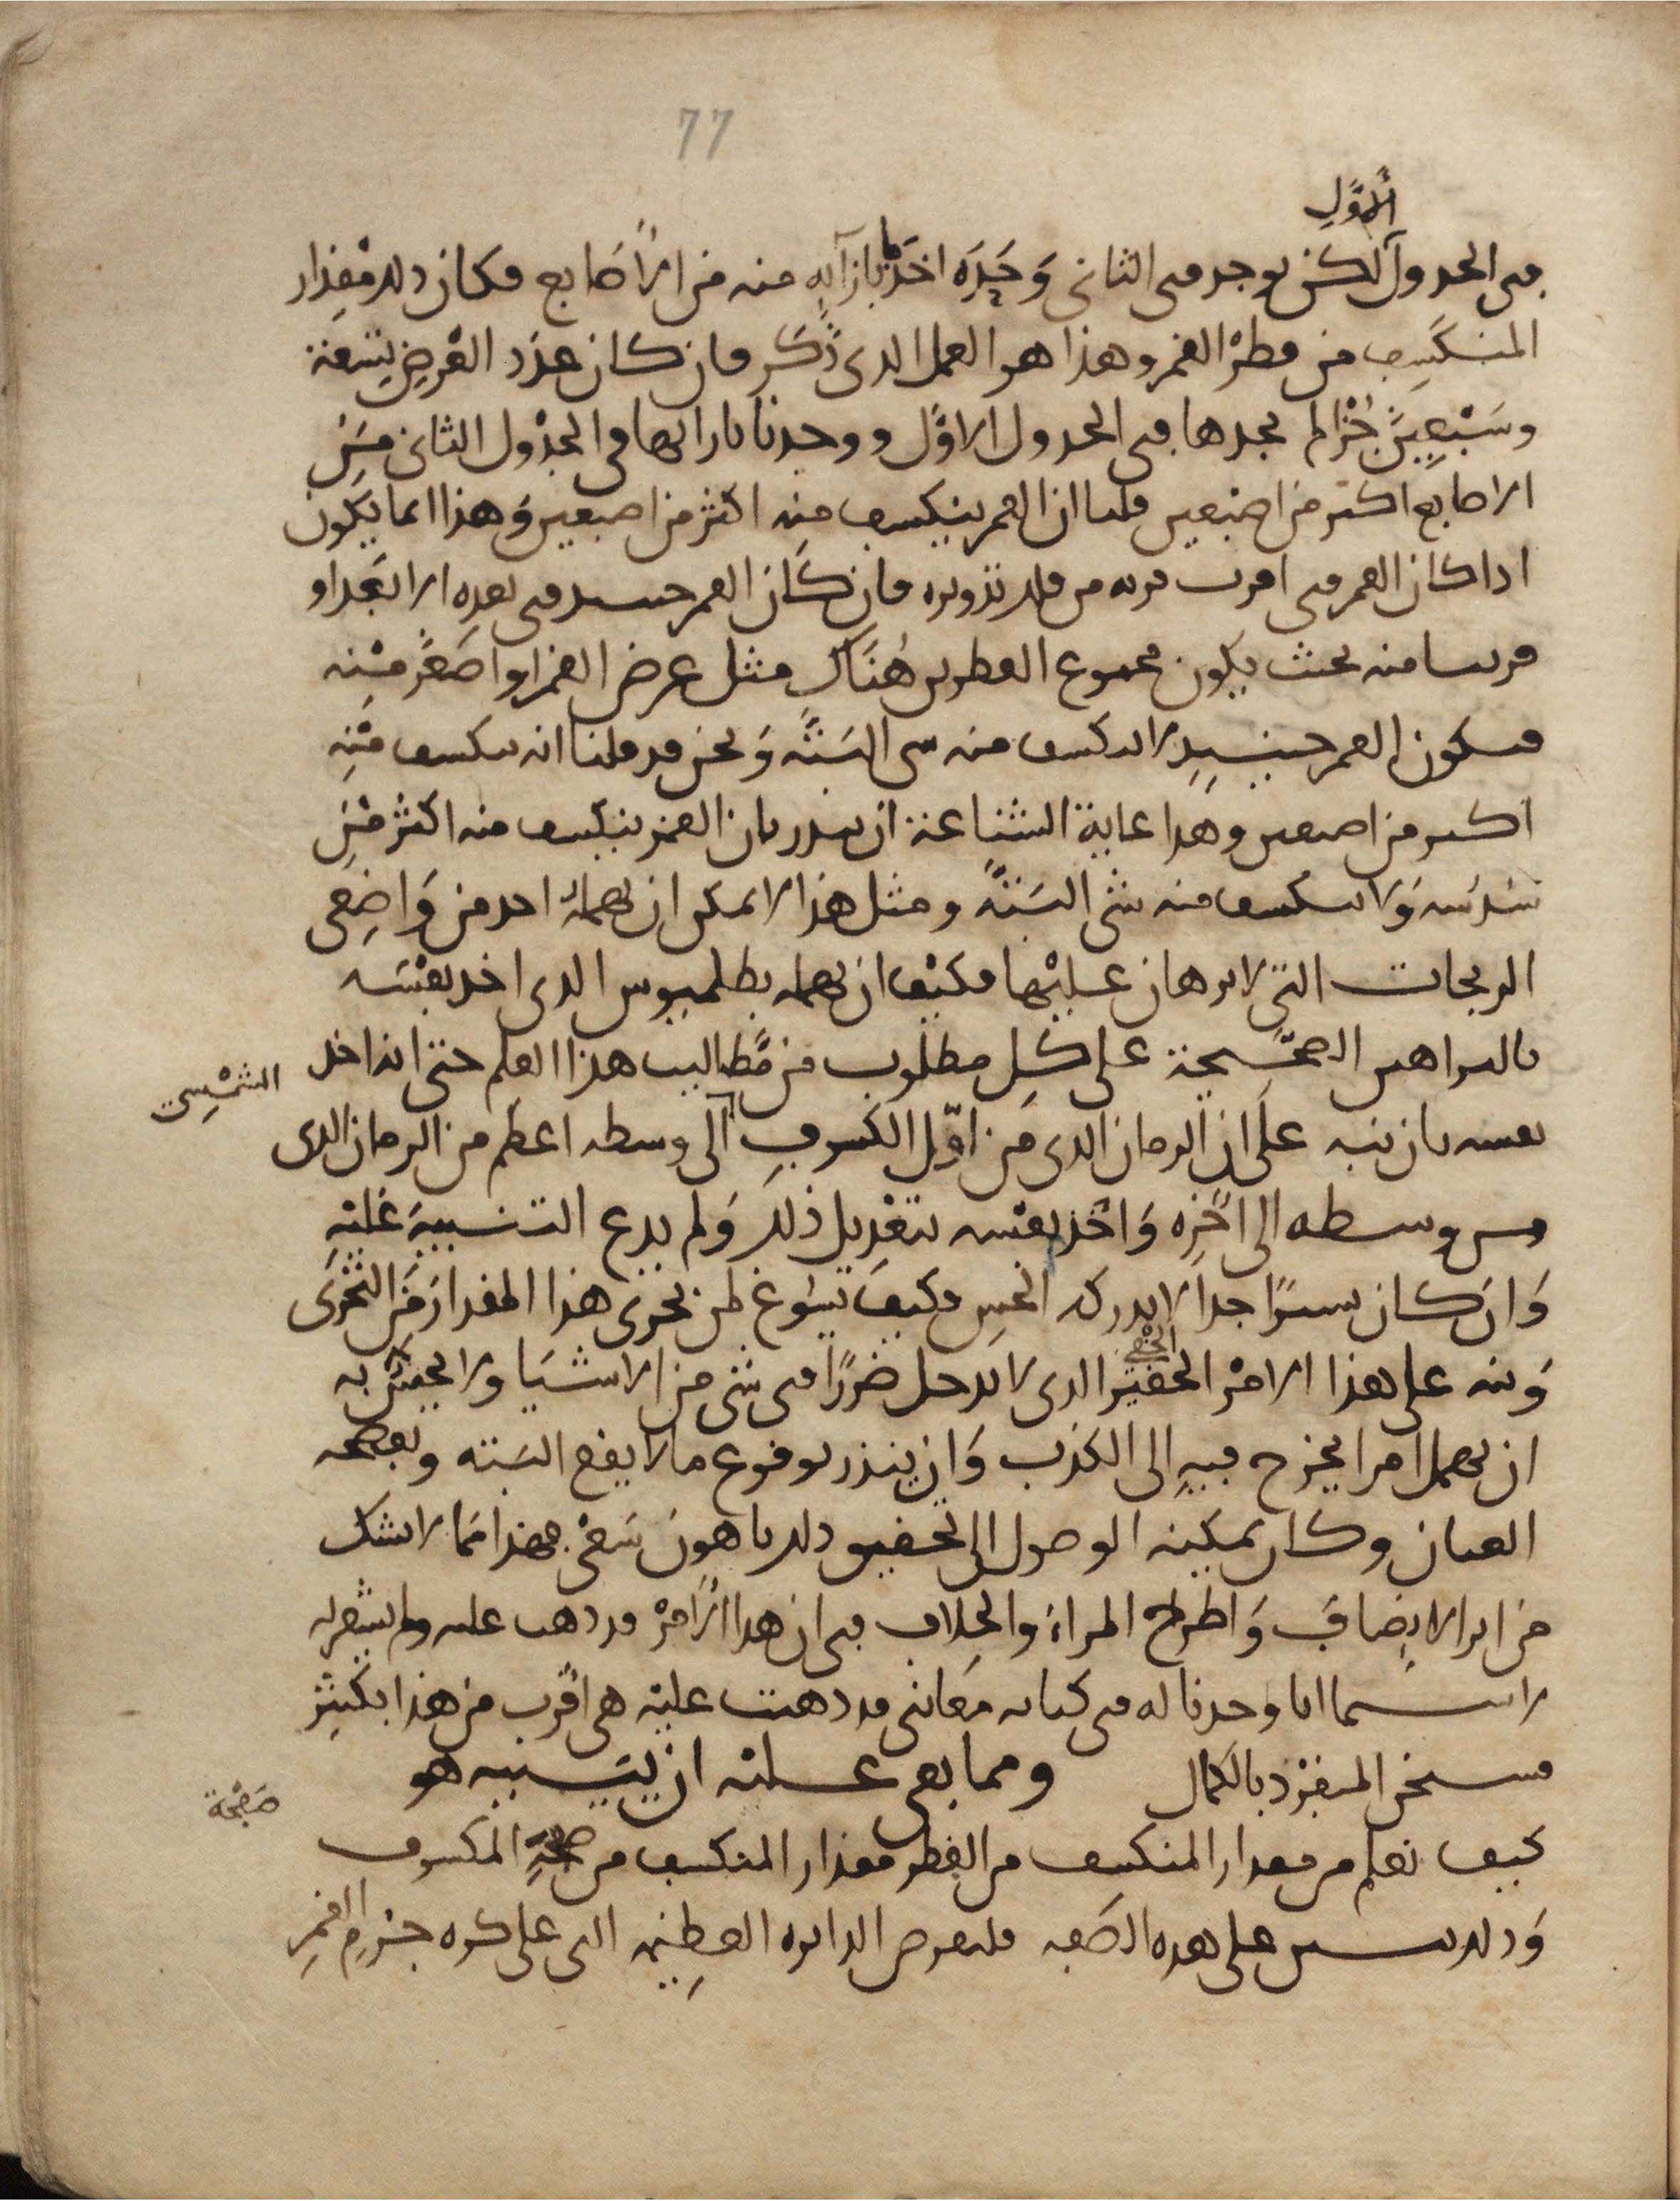 77
الأول
في الجدول لكن يوجد في الثاني وحده اخذنا بازآيه منه من الأصابع فكان ذلك مقدار
المنكسف من قطر القمر وهذا هو العمل الذي ذكر فان كان عدد العرض تسعة
وسبعين جزا لم نجدها في الجدول الاول ووجدنا بازائها في الجدول الثاني من
الاصابع اكثر من اصبعين قلنا ان القمر ينكسف منه اكثر من اصبعين وهذا انما يكون
اذا كان القمر في اقرب قربه من فلك تدويره فان كان القمر حينئذ في بعده الابعد او
قريبا منه بحيث يكون مجموع القطرين هناك مثل عرض القمر او اصغر منه
فيكون القمر حينئذ لا ينكسف منه شي البتة ونحن قد قلنا انه ينكسف منه
اكثر من اصبعين وهذا غاية الشناعة ان ينذر بان القمر ينكسف منه اكثر من
سدسه ولا ينكسف منه شي البتة ومثل هذا لا يمكن ان يهمله احد من واضعي
الزيجات التي لا برهان عليها فكيف ان يهمله بطلميوس الذي اخذ نفسه
بالبراهين الصحيحة على كل مطلوب من مطالب هذا العلم حتى انه اخذ
الشمسي
نفسه بان نبه على ان الزمان الذي من اول الكسوف الى وسطه اعظم من الزمان الذي
من وسطه الى اخره واخذ نفسه بتعديل ذلك ولم يدع التنبيه عليه
وان كان يسيرا جدا لا يدركه الحس وكيف يسوغ لمن تحرى هذا المقدار من التحرى
الخفي
ونبه على هذا الامر الحقير الذي لا يدخل ضررا في شي من الاشيا ولا يحس به
ان يهمل امرا يخرج فيه الى الكذب وان ينذر بوقوع ما لا يقع البته ويفضحه
العيان وكان يمكنه الوصول الى تحقيق ذلك باهون سعي فهذا مما لا يشك
من اثر الانصاف واطرح المراء والخلاف في ان هذا الامر قد ذهب عليه ولم يشعر له
لا سيما انا وجدنا له في كتابه معاني قد ذهبت عليه هي اقرب من هذا بكثير
فسبحن المنفرد بالكمال ومما بقى علينا ان نبينه هو
كيف نعلم من مقدار المنكسف من القطر مقدار المنكسف من صفحة المكسوف
صفحة
وذلك يتبين على هذه الصفه فلنفرض الدايره العظيمه التي على كره جرم القمر